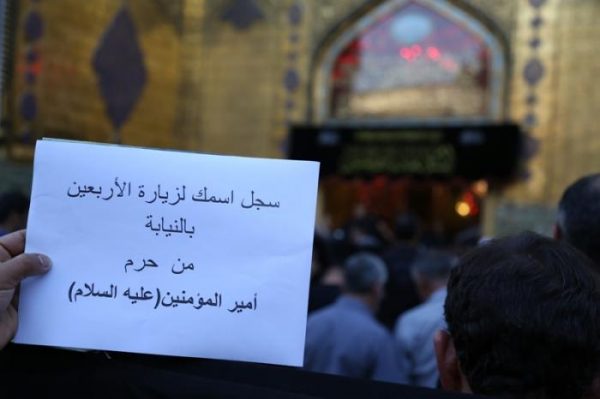 سجل اسمك لزيارة الأربعين
بالنيابة
من حرم
أمير المؤمنين(عليه السلام)